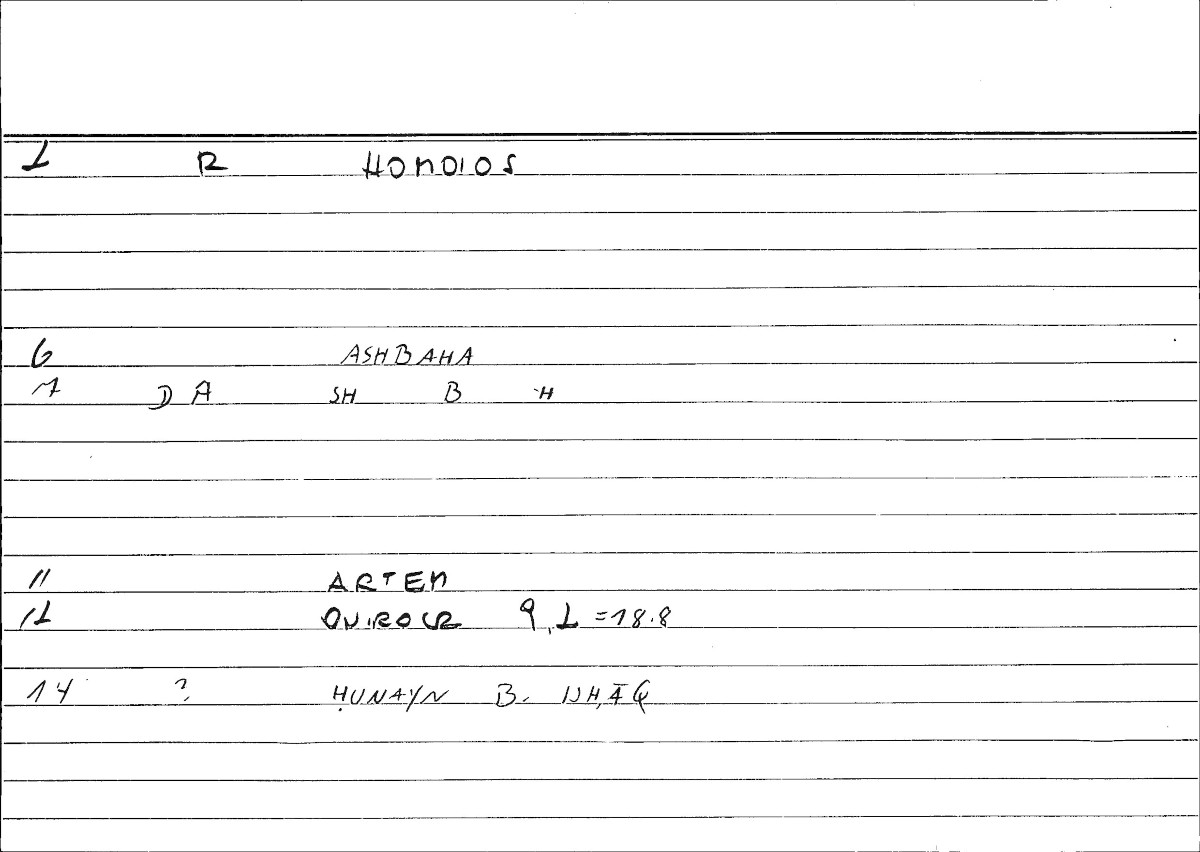 2 R HOMOIOS
6 ASHBAHA
7 D A SH B H
11 ARTEM
12 ONIROCR 9,2 = 18.8
14 ? ḤUNAYN B. ISḤĀQ